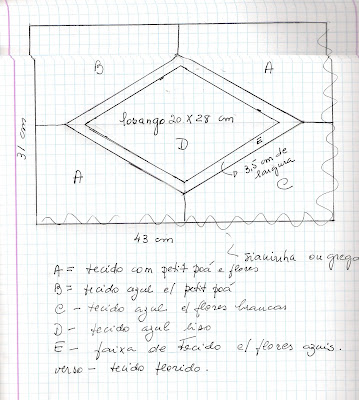 B
A
losango 20 X 28 cm
D
E
3,5 cm de
largura
C
A
31 cm
43 cm
sianinha ou grega
A = tecido com petit poá e flores
B = tecido azul c/ petit poá
C - tecido azul c/ flores brancas
D - tecido azul liso
E - faixa de tecido c/ flores azuis.
verso - tecido florido.